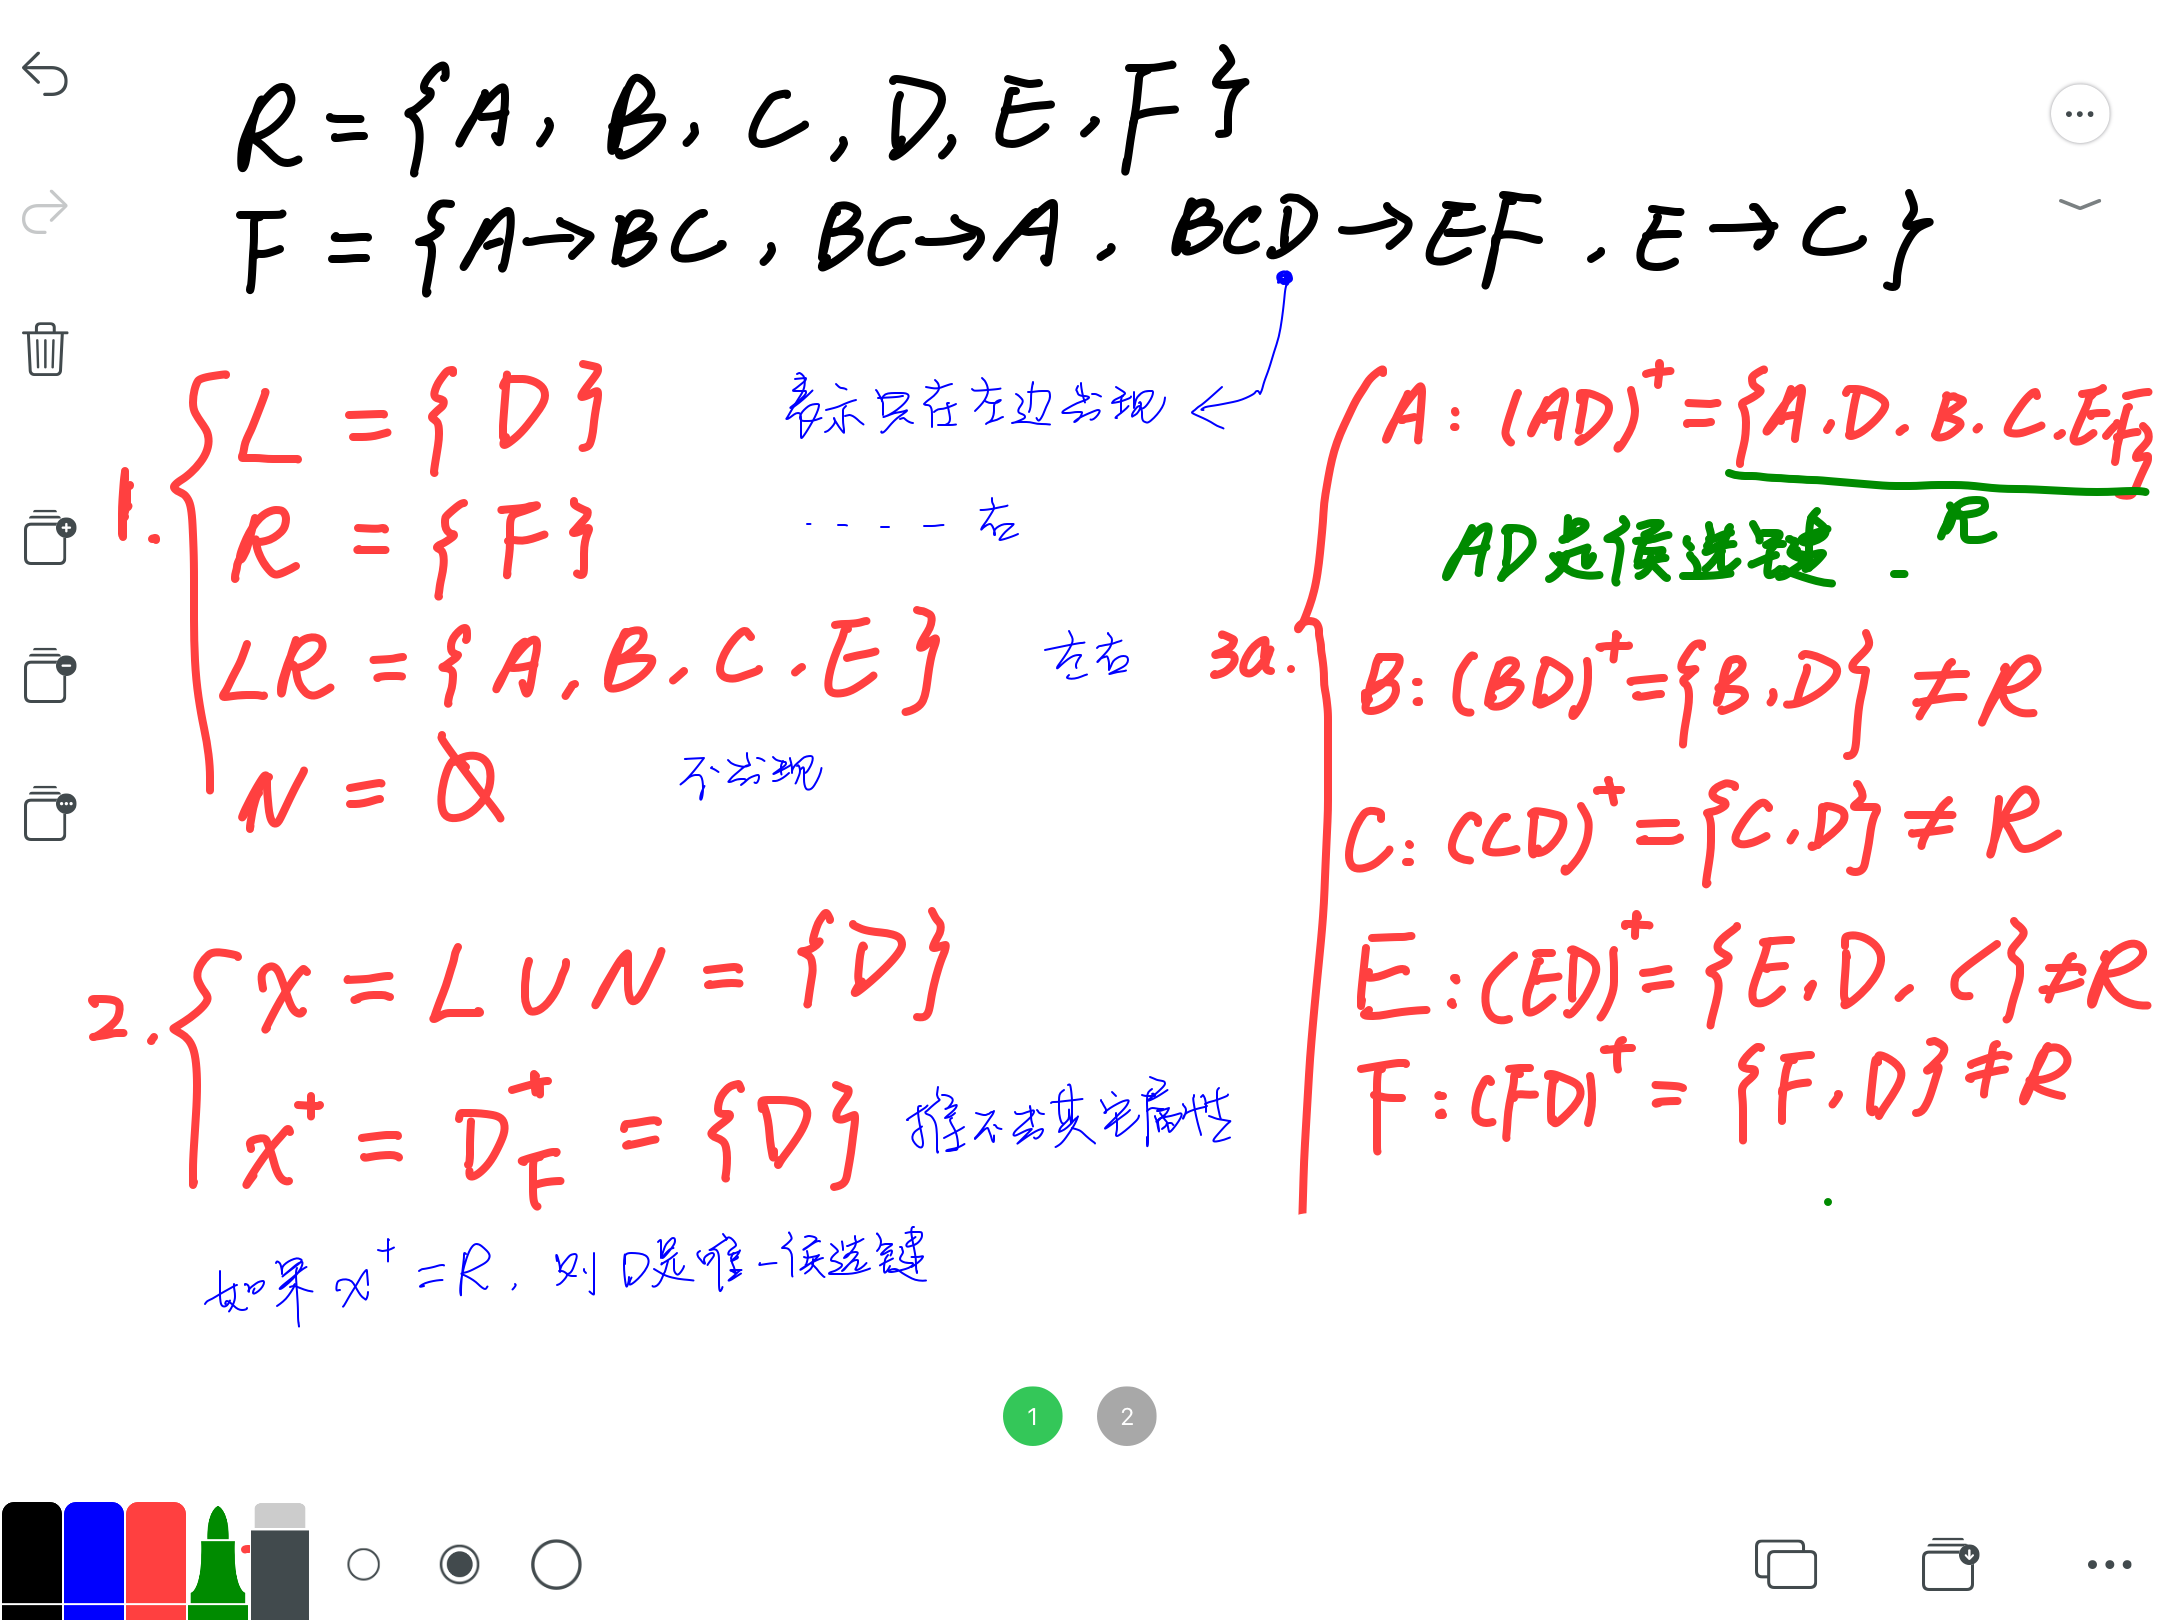 R = {A, B, C, D, E, F}
F = {A→BC, BC→A, BCD→EF, E→C}
1.
L = {D} 表示只在左边出现
R = {F} ..... 右
LR = {A, B, C, E} 左右
N = ∅ 不出现
2.
X = L ∪ N = {D}
X⁺ = D⁺F = {D} 推不出其它属性
如果 X⁺ = R, 则 D是唯一候选键
3a.
A: (AD)⁺ = {A, D, B, C, E, F}
R
AD是侯选键.
B: (BD)⁺ = {B, D} ≠ R
C: (CD)⁺ = {C, D} ≠ R
E: (ED)⁺ = {E, D, C} ≠ R
F: (FD)⁺ = {F, D} ≠ R
1 2